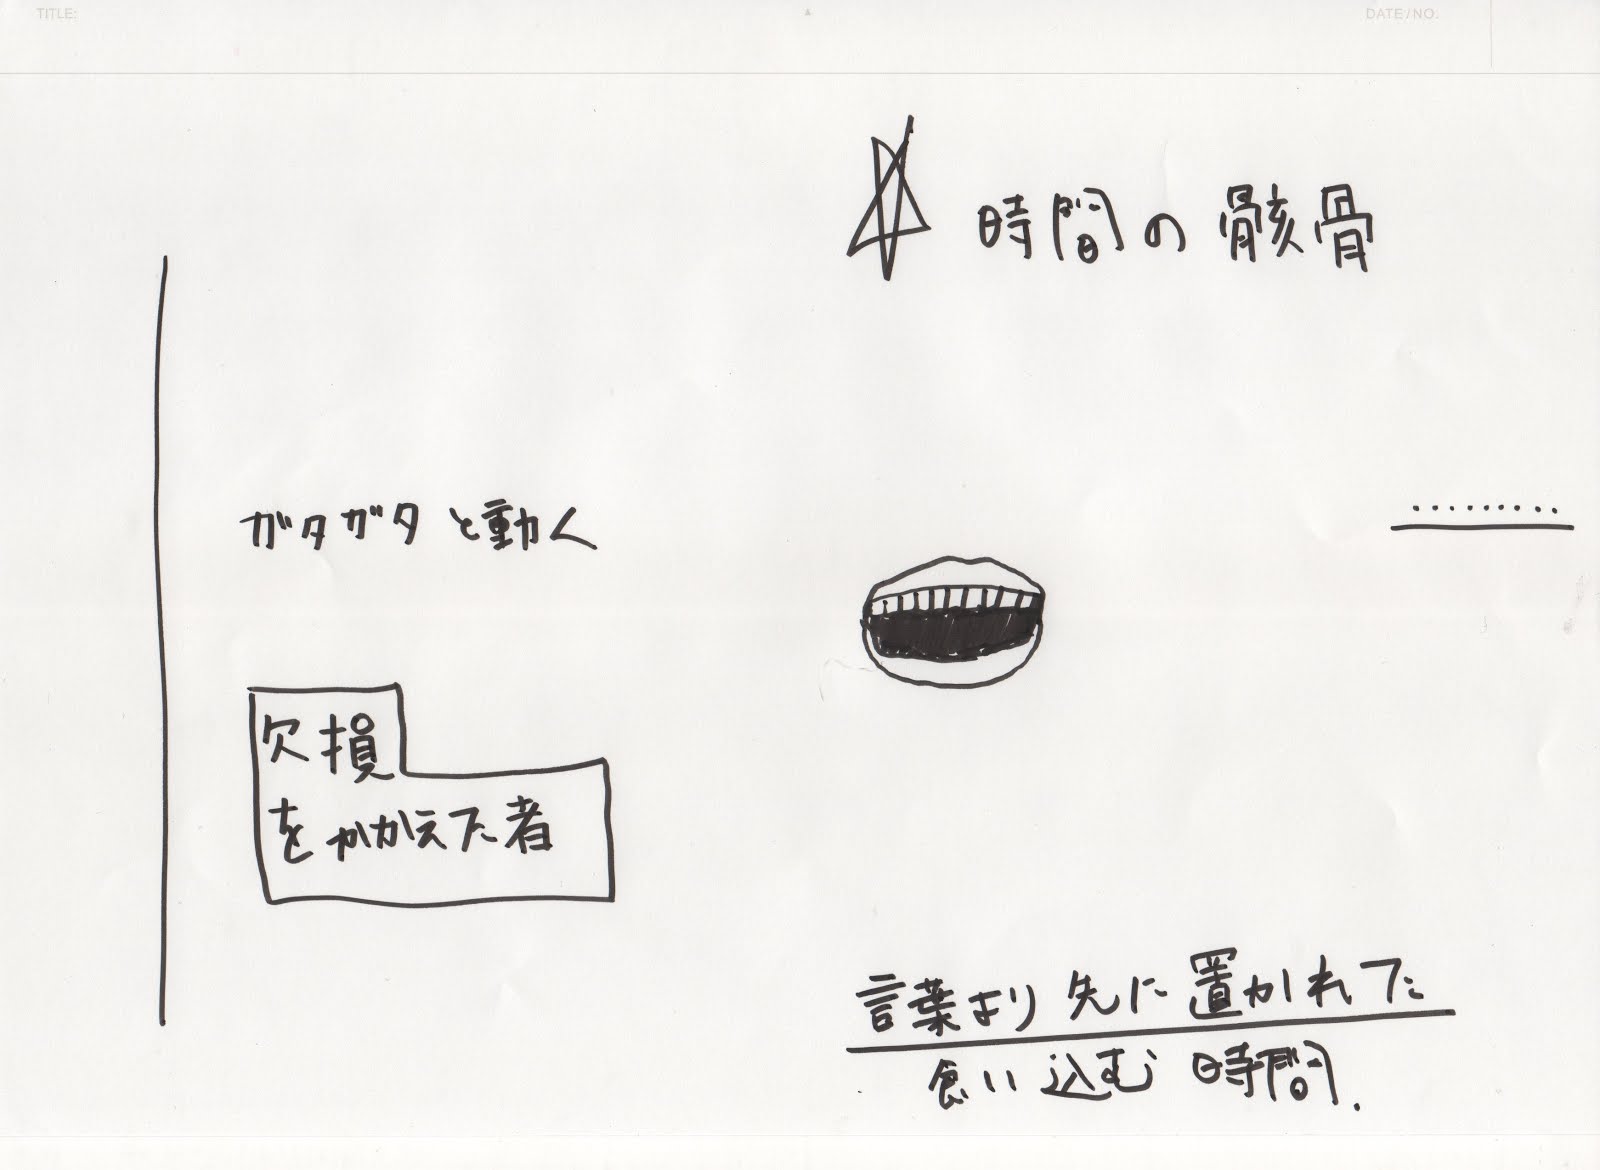 TITLE:
DATE/NO.
時間の骸骨
ガタガタと動く
.........
欠損
をかかえた者
言葉より先に置かれた
食い込む時間.